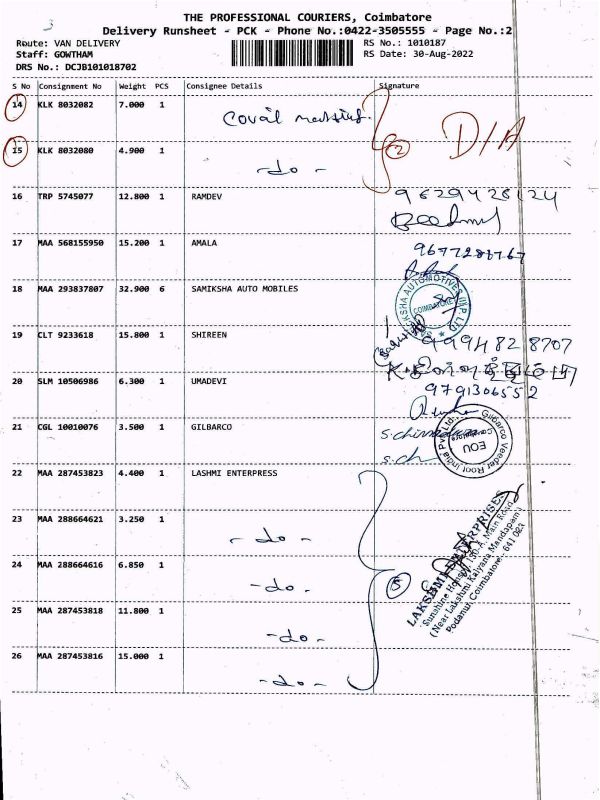 3
THE PROFESSIONAL COURIERS, Coimbatore
Delivery Runsheet - PCK - Phone No.:0422-3505555 - Page No.:2
Route: VAN DELIVERY RS No.: 1010187
Staff: GOWTHAM RS Date: 30-Aug-2022
DRS No.: DCJB101018702
S No Consignment No Weight PCS Consignee Details Signature
14 KLK 8032082 7.000 1
D/A
15 KLK 8032080 4.900 1 -do- 2
16 TRP 5745077 12.800 1 RAMDEV 9629428124
17 MAA 568155950 15.200 1 AMALA 9677281767
18 MAA 293837807 32.900 6 SAMIKSHA AUTO MOBILES
SAMIKSHA AUTOMOTIVES IN P. LTD
COIMBATORE
19 CLT 9233618 15.800 1 SHIREEN 9994828707
20 SLM 10506986 6.300 1 UMADEVI 9791306552
21 CGL 10010076 3.500 1 GILBARCO
Gilbarco Veeder Root India Pvt. Ltd.
EOU
Coimbatore
22 MAA 287453823 4.400 1 LASHMI ENTERPRESS
23 MAA 288664621 3.250 1 -do-
24 MAA 288664616 6.850 1 -do- 5
25 MAA 287453818 11.800 1 -do-
26 MAA 287453816 15.000 1 -do-
LAKSHMI ENTERPRISES
Sunshine House, 130-A, Main Road
(Near Lakshmi Kalyana Mandapam)
Podanur, Coimbatore - 641 023